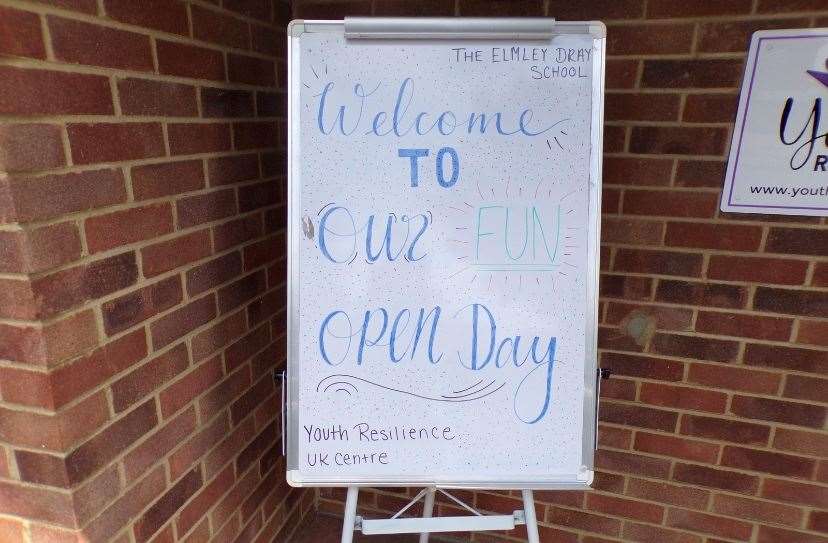 THE ELMLEY DRAY
SCHOOL
Welcome
TO
Our FUN
OPEN Day
Youth Resilience
UK Centre
www.youth